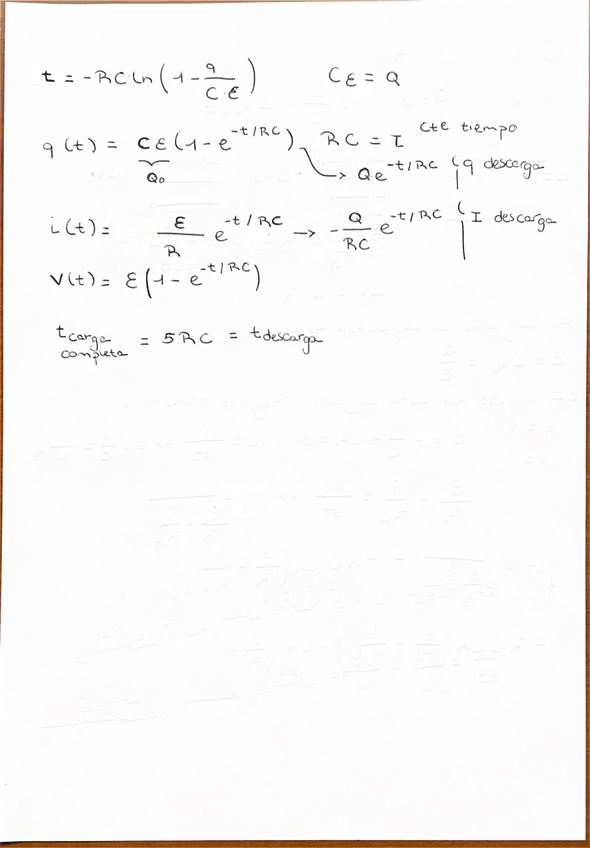 t = -RC ln (1 - q/(C·ε)) Cε = Q
q(t) = Cε(1 - e^(-t/RC)) RC = τ cte tiempo
Q₀ → Qe^(-t/RC) (q descarga
i(t) = ε/R e^(-t/RC) → -Q/(RC) e^(-t/RC) (I descarga
V(t) = ε(1 - e^(-t/RC))
t carga completa = 5RC = t descarga